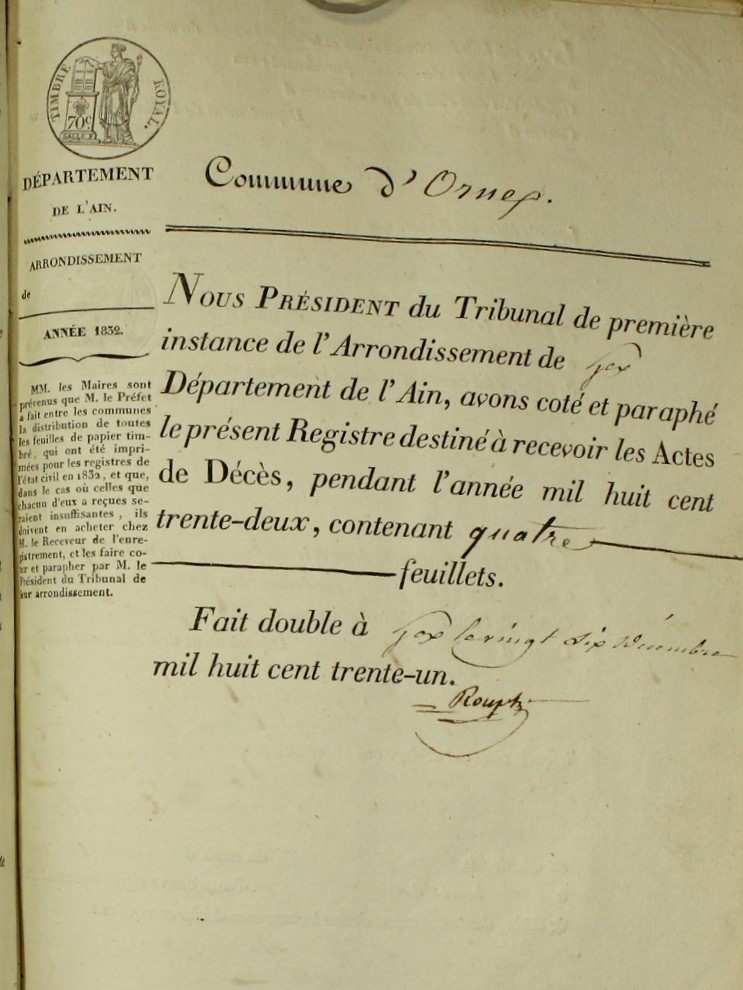 TIMBRE ROYAL.
70c
DÉPARTEMENT
DE L'AIN.
ARRONDISSEMENT
de
ANNÉE 1832.
MM. les Maires sont
prévenus que M. le Préfet
a fait entre les communes
la distribution de toutes
les feuilles de papier tim-
bré, qui ont été impri-
mées pour les registres de
l'état civil en 1832, et que,
dans le cas où celles que
chacun d'eux a reçues se-
raient insuffisantes, ils
doivent en acheter chez
M. le Receveur de l'enre-
gistrement, et les faire co-
ter et parapher par M. le
Président du Tribunal de
leur arrondissement.
Commune d'Ornex.
NOUS PRÉSIDENT du Tribunal de première
instance de l'Arrondissement de Gex
Département de l'Ain, avons coté et paraphé
le présent Registre destiné à recevoir les Actes
de Décès, pendant l'année mil huit cent
trente-deux, contenant quatre
feuillets.
Fait double à Gex le vingt six décembre
mil huit cent trente-un.